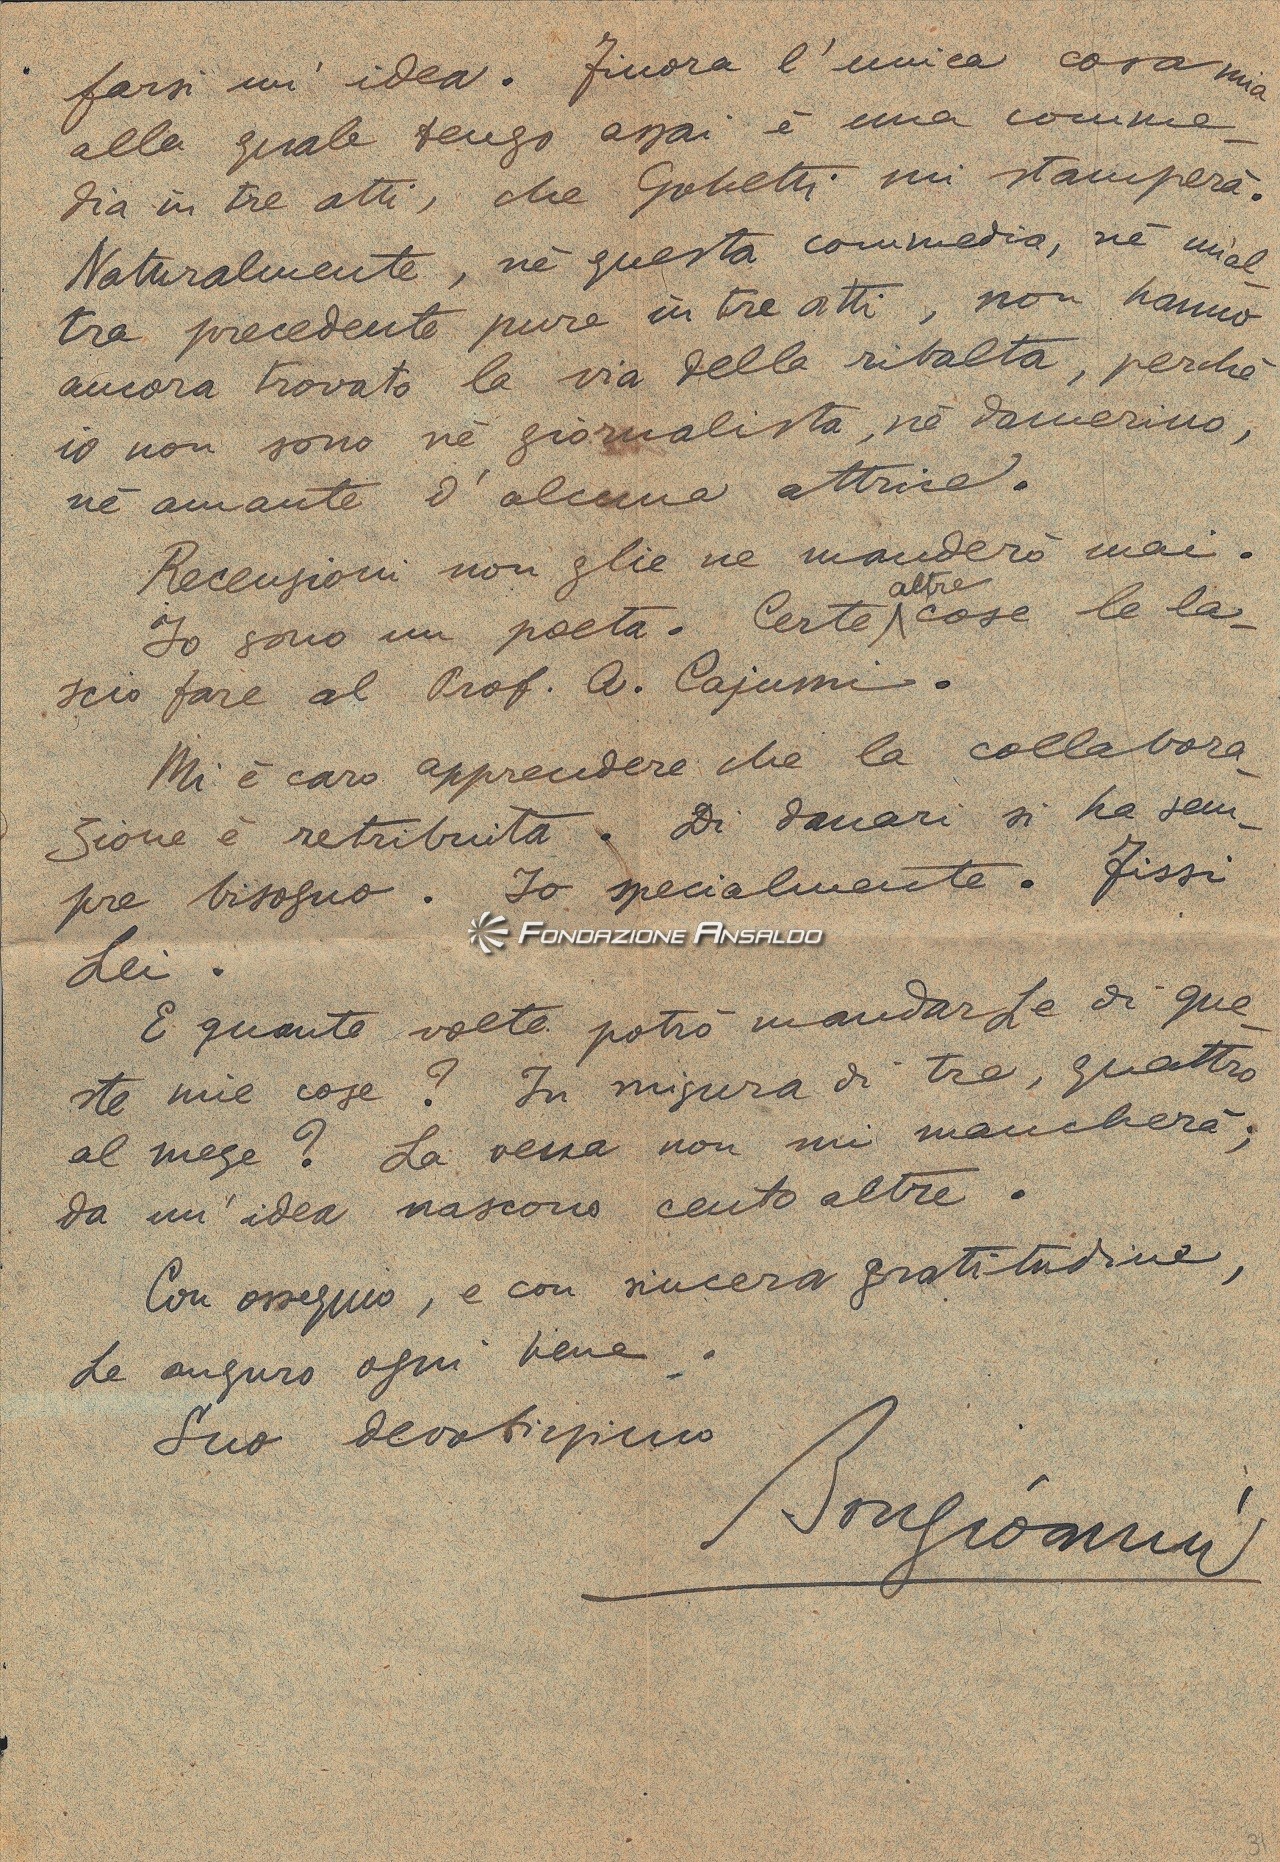 farsi un' idea. Finora l'unica cosa mia
alla quale tengo assai è una comme-
dia in tre atti, che Gobetti mi stamperà.
Naturalmente, nè questa commedia, nè un'al
tra precedente pure in tre atti, non hanno
ancora trovato la via della ribalta, perchè
io non sono nè giornalista, nè damerino,
nè amante d'alcuna attrice.
Recensioni non glie ne manderò mai.
Io sono un poeta. Certe altre cose le la-
scio fare al Prof. A. Cajumi.
Mi è caro apprendere che la collabora-
zione è retribuita. Di danari si ha sem-
pre bisogno. Io specialmente. Fissi
FONDAZIONE ANSALDO
Lei.
E quante volte potrò mandarLe di que-
ste mie cose? In misura di tre, quattro
al mese? La vena non mi mancherà;
da un'idea nascono cento altre.
Con ossequio, e con sincera gratitudine,
Le auguro ogni bene.
Suo devotissimo
Bongioanni